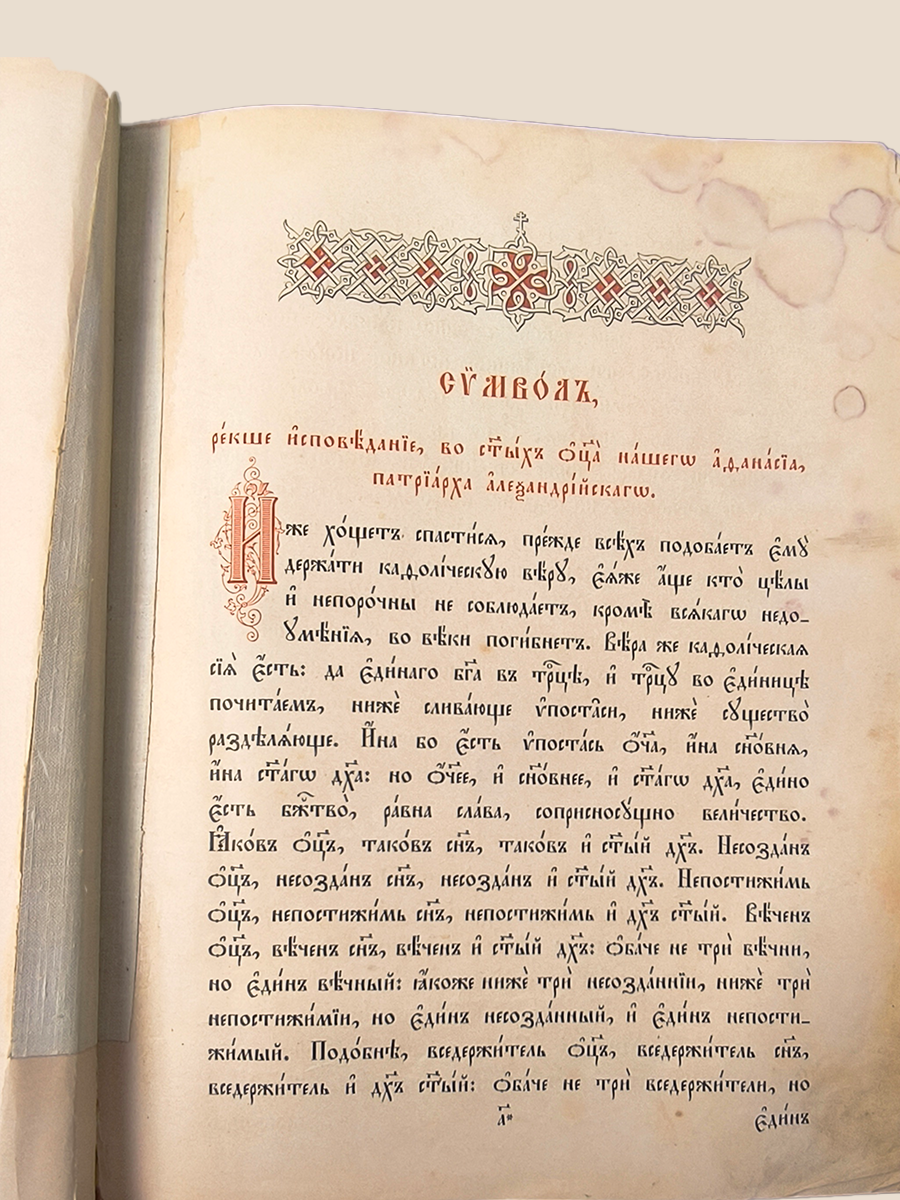 СѶМВО́ЛЪ,
ре́кше и҆сповѣ́данїе, во ст҃ы́хъ ѻ҆ц҃а̀ на́шегѡ а҆ѳана́сїа,
патрїа́рха а҆леѯандрі́йскагѡ.
И҆́же хо́щетъ спасти́сѧ, пре́жде всѣ́хъ подоба́етъ є҆мꙋ̀
держа́ти каѳолі́ческꙋю вѣ́рꙋ, є҆ѧ́же а҆́ще кто̀ цѣ́лы
и҆ непоро́чны не соблюда́етъ, кромѣ̀ всѧ́кагѡ недо-
ꙋмѣ́нїѧ, во вѣ́ки поги́бнетъ. Вѣ́ра же каѳолі́ческаѧ
сїѧ̀ є҆́сть: да є҆ди́наго бг҃а въ трⷪ҇цѣ, и҆ трⷪ҇цꙋ во є҆ди́ницѣ
почита́емъ, нижѐ слива́юще ѵ҆поста̑си, нижѐ сꙋщество̀
раздѣлѧ́юще. И҆́на бо є҆́сть ѵ҆поста́сь ѻ҆́ч҃а, и҆́на сн҃о́внѧ,
и҆́на ст҃а́гѡ дх҃а: но ѻ҆́ч҃ее, и҆ сн҃о́внее, и҆ ст҃а́гѡ дх҃а, є҆ди́но
є҆́сть бжⷭ҇тво̀, ра́вна сла́ва, соприсносꙋ́щно вели́чество.
Ꙗ҆ко́въ ѻ҆ц҃ъ, тако́въ сн҃ъ, тако́въ и҆ ст҃ы́й дх҃ъ. Несозда́нъ
ѻ҆ц҃ъ, несозда́нъ сн҃ъ, несозда́нъ и҆ ст҃ы́й дх҃ъ. Непостижи́мь
ѻ҆ц҃ъ, непостижи́мь сн҃ъ, непостижи́мь и҆ дх҃ъ ст҃ы́й. Вѣ́ченъ
ѻ҆ц҃ъ, вѣ́ченъ сн҃ъ, вѣ́ченъ и҆ ст҃ы́й дх҃ъ: ѻ҆ба́че не трѝ вѣ́чни,
но є҆ди́нъ вѣ́чный: ꙗ҆́коже нижѐ трѝ несозда́ннїи, нижѐ трѝ
непостижи́мїи, но є҆ди́нъ несозда́нный, и҆ є҆ди́нъ непости-
жи́мый. Подо́бнѣ, вседержи́тель ѻ҆ц҃ъ, вседержи́тель сн҃ъ,
вседержи́тель и҆ дх҃ъ ст҃ы́й: ѻ҆ба́че не трѝ вседержи́тели, но
а҃* є҆ди́нъ